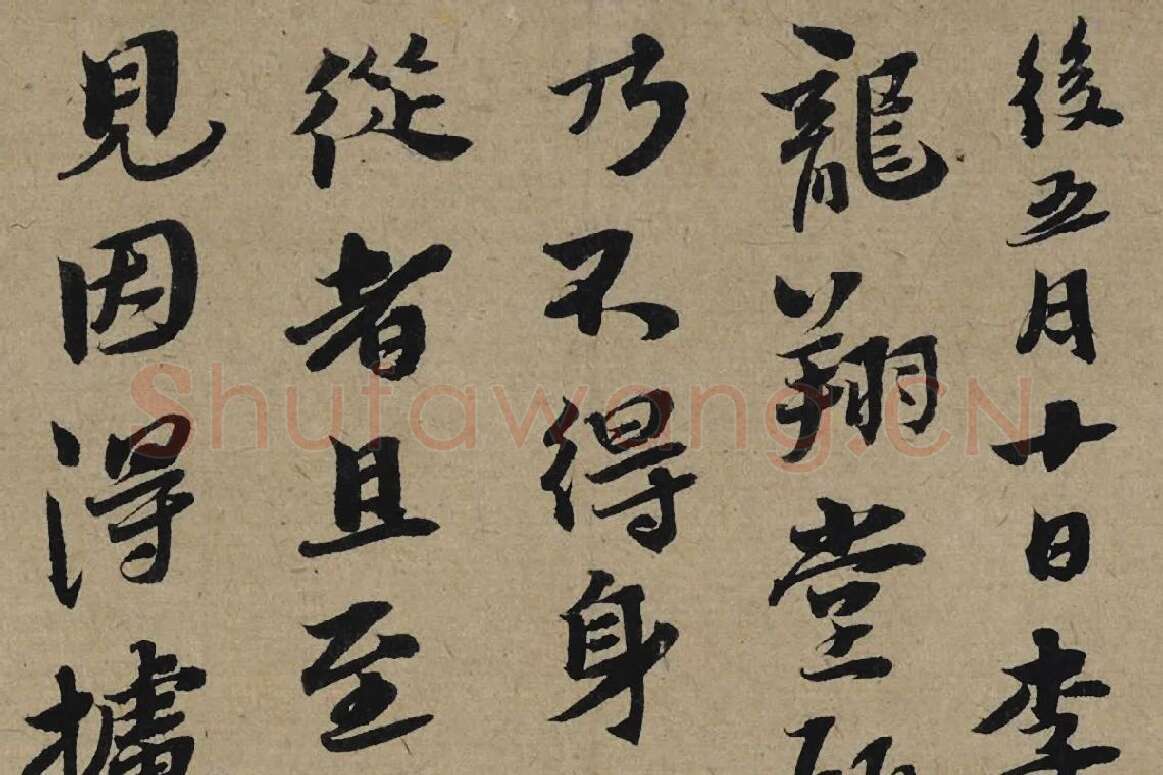 後五月廿日李
龍翔堂
乃不得身
從者且至
見因得攄
Shufawang.CN